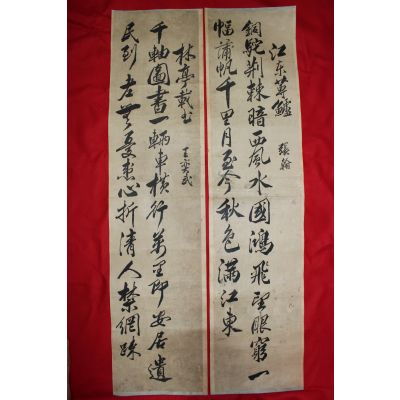 江東蓴鱸
張翰
銅駝荊棘暗西風水國鴻飛望眼窮一
幅蒲帆千里月至今秋色滿江東
林亭載書
王奕武
千軸圖書一輛車橫行萬里即安居遺
民到老無憂患心折清人禁網踈